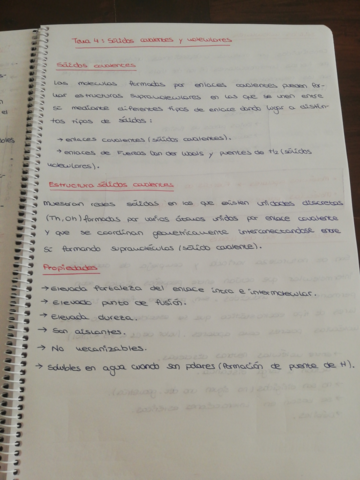 Tema 4: Sólidos covalentes y moleculares
Sólidos covalentes
Las moléculas formadas por enlaces covalentes pueden for-
mar estructuras supramoleculares en las que se unen entre
sí mediante diferentes tipos de enlace dando lugar a distin-
tos tipos de sólidos:
→ enlaces covalentes (sólidos covalentes).
→ enlaces de Fuerzas Van der Waals y puentes de H₂ (sólidos
moleculares).
Estructura sólidos covalentes
Muestran redes sólidas en las que existen unidades discretas
(Th, Oh) formadas por varios átomos unidos por enlace covalente
y que se coordinan geométricamente interconectándose entre
sí formando supramoléculas (sólido covalente).
Propiedades
→ Elevada fortaleza del enlace intra e intermolecular.
→ Elevado punto de fusión.
→ Elevada dureza.
→ Son aislantes.
→ No mecanizables.
→ Solubles en agua cuando son polares (formación de puente de H).